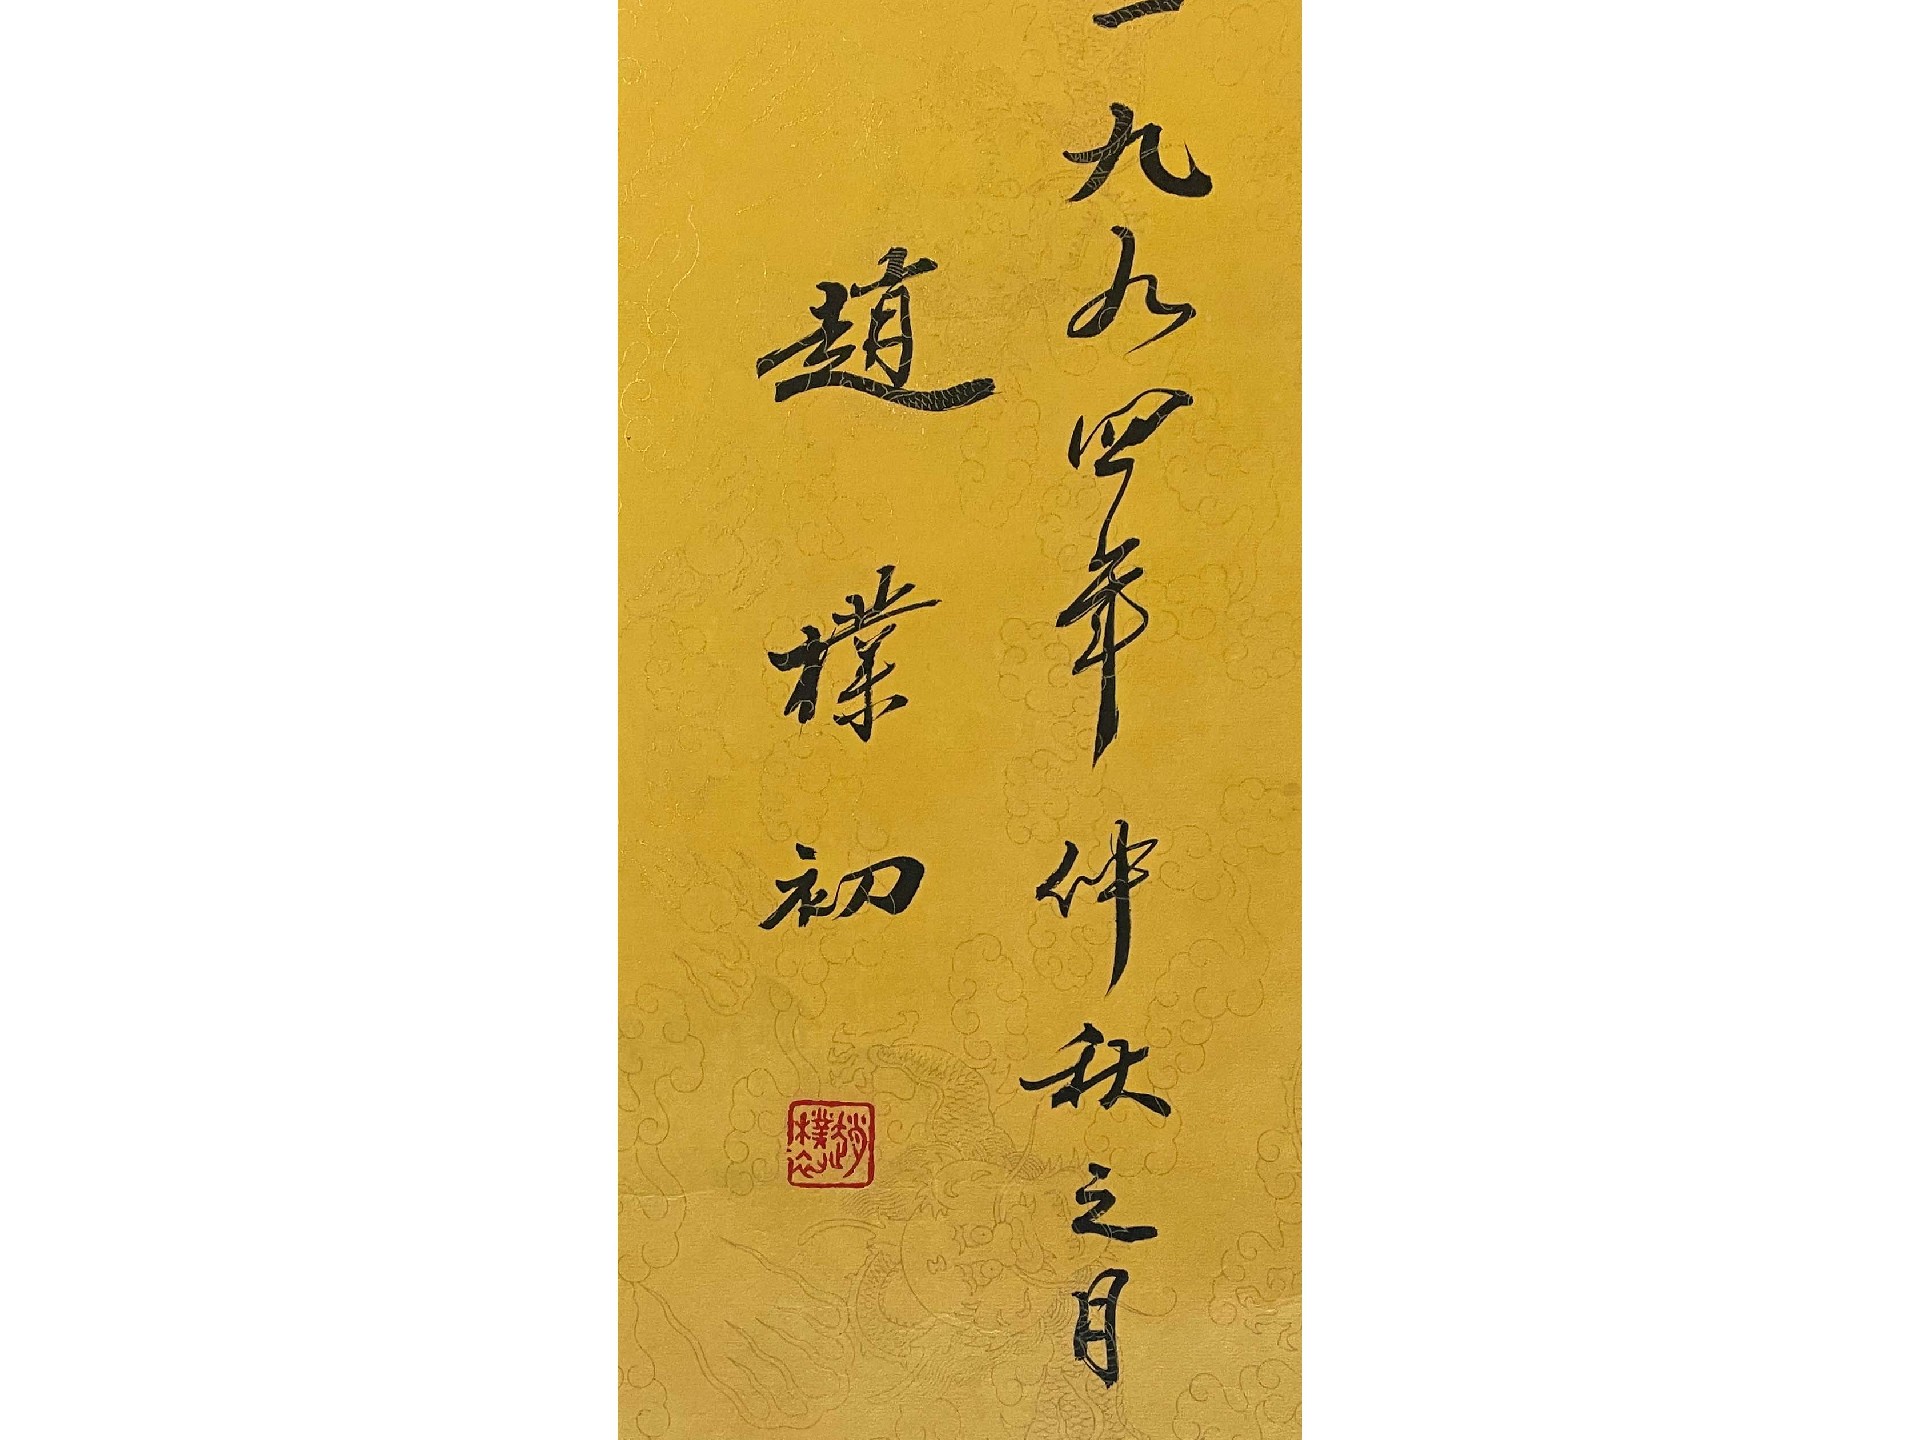 一九九四年仲秋之日
趙樸初
趙樸初